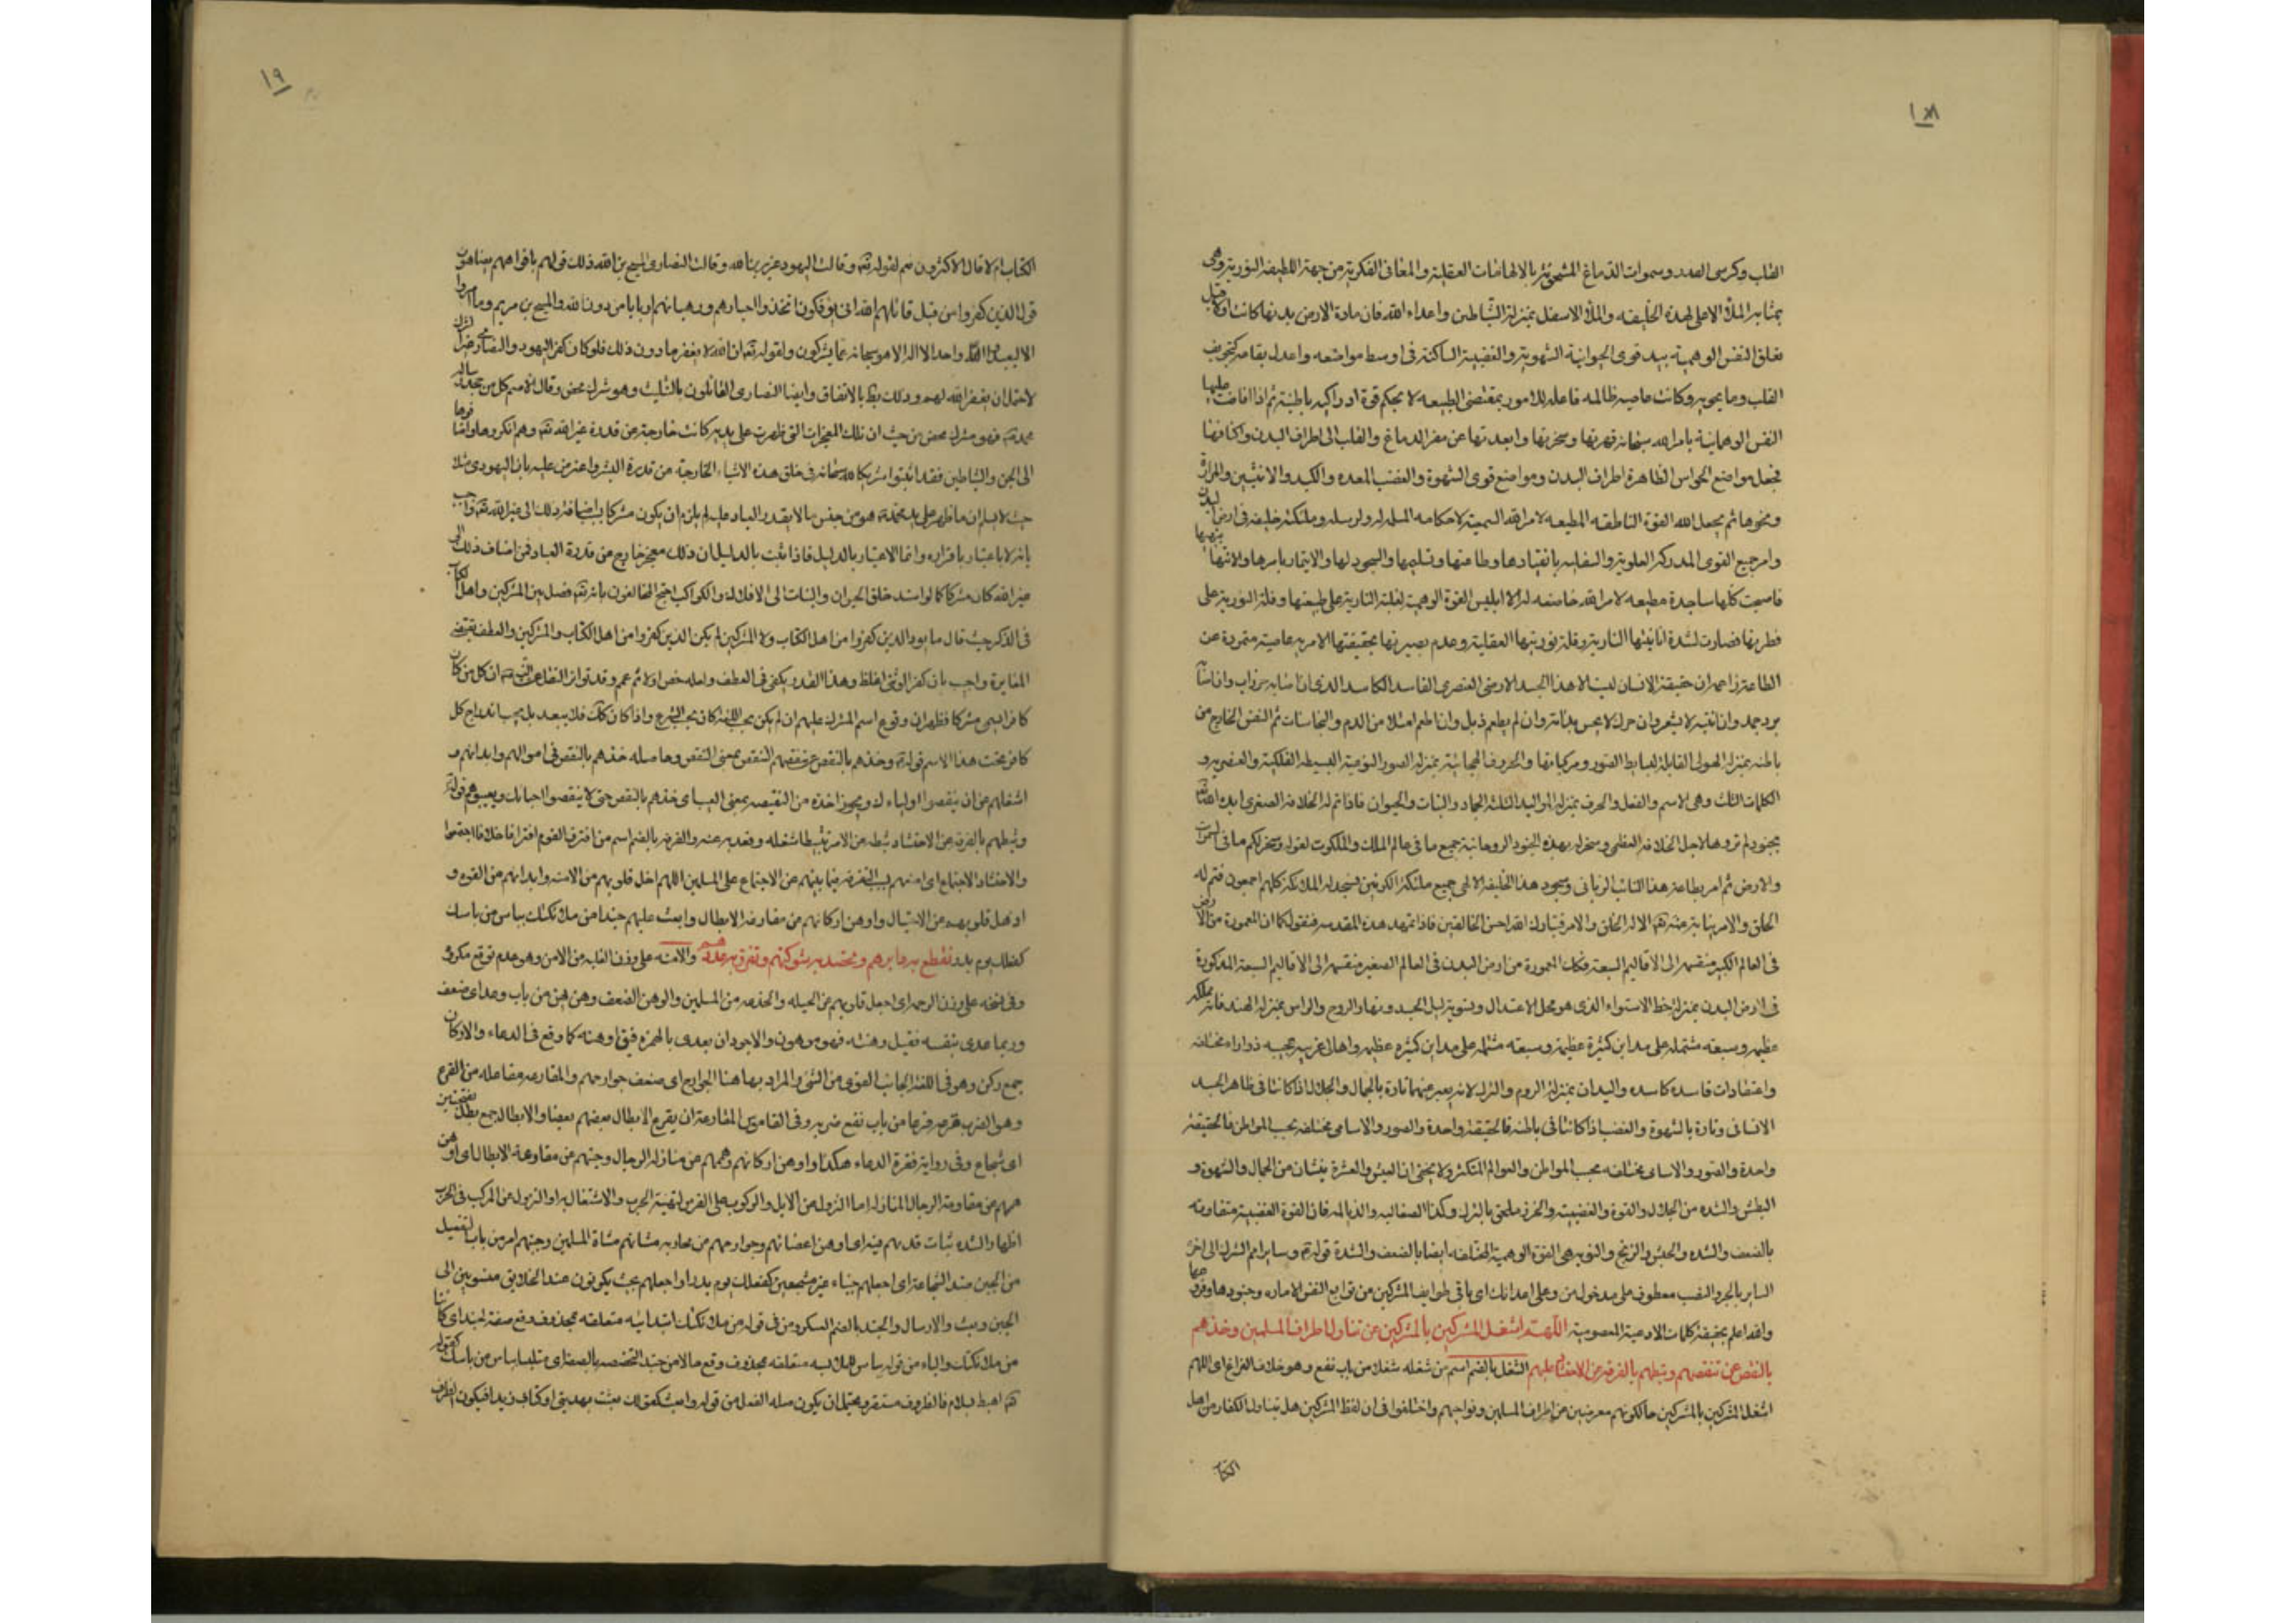 ١٨
القلب وكرسى الصدر وسموات الدماغ المشحونة بالالهامات العقلية والمعانى الفكرية من جهة اللطيفه النورية وهى
بمثابة الملأ الاعلى لهذه الخليفه والملأ الاسفل بمنزلة الشياطين واعداء الله فان مادة الارض بدنها كانت اولا قبل
تعلق النفس الوهمية بيد قوى الحيوانية الشهوية والغضبية الساكنة فى اوسط مواضعه واعدل بقاعه كتجويف
القلب وما يحويه وكانت عاصيه ظالمه فاعله للامور بمقتضى الطبيعه لا بحكم قوة ادراكيه باطنية ثم اذا افاضت عليها
النفس الوهمانية بامر الله سبحانه قهرتها وسخرتها وابعدتها عن مقر الدماغ والقلب الى اطراف البدن واكنافها
فجعل مواضع الحواس الظاهرة اطراف البدن ومواضع قوى الشهوة والغضب المعده والكبد والانثيين والمرارة
ونحوها ثم يجعل الله القوة الناطقه المطيعه لامر الله السميعة لاحكامه المسلمه له ولرسله وملئكته خليفه فى ارض البدن
وامر جميع القوى المدركة العلوية والسفليه بانقيادها وطاعتها وتسليمها والسجود لها والايتمار بامرها والانتهاء بنهيها
فاصبحت كلها ساجدة مطيعه لامر الله خاضعه له الا ابليس القوة الوهمية لغلبة النارية على طبيعتها وقلة النورية على
فطرتها فصارت لشدة انانيتها النارية وقلة نوريتها العقلية وعدم بصيرتها بحقيقتها الامرية عاصية متمردة عن
الطاعة زاعمه ان حقيقة الانسان ليست الا هذا الجسد الارضى العنصرى الفاسد الكاسد الذى اذا
برد جمد وان لا يشعر وان حرك لا يحس بذاته وان لم يطعم ذبل وان اطعم امتلا من الدم والنجاسات ثم النفس الخارج من
باطنه بمنزلة الهيولى القابلة لبسايط الصور ومركباتها والحروف الهجائية بمنزلة الصور النوعية البسيطه الفلكية والعنصريه و
الكلمات الثلث وهى الاسم والفعل والحرف بمنزلة المواليد الثلثة الجماد والنبات والحيوان فاذا تم له الخلافة الصغرى ايده الله
بجنود لم تروها لاجل الخلافة العظمى وسخر له بهذه الجنود الروحانية جميع ما فى عالم الملك والملكوت لقوله وسخر لكم ما فى السموات
والارض ثم امر بطاعة هذا النائب الربانى وسجود هذا الخليفة الالهى جميع ملئكة الكونين فسجد له الملئكة كلهم اجمعون فتم له
الخلق والامر نيابة منه الا له الخلق والامر فتبارك الله احسن الخالقين فاذا تمهد هذه المقدمه فنقول كما ان المعمورة من الارض
فى العالم الكبير منقسمة الى الاقاليم السبعة فكذلك المعمورة من ارض البدن فى العالم الصغير منقسمة الى الاقاليم السبعة المذكورة
فى ارض البدن بمنزلة خط الاستواء الذى هو محل الاعتدال وتسوية ليل الجسد ونهار الروح والراس بمنزلة الهند فانه مملكة
عظيمه وسيعه مشتمله على مداين كثيرة عظيمه وسيعه مشتمله على مداين كثيره عظيمه واهالى غريبه عجيبه ذو اراء مختلفه
واعتقادات فاسده كاسده واليدان بمنزلة الروم والترك لانه يعبر عنهما تارة بالجمال والجلال اذا كانتا فى ظاهر الجسد
الانسانى وتارة بالشهوة والغضب اذا كانتا فى باطنه فالحقيقة واحدة والصور والاسامى مختلفه بحسب المواطن فالحقيقة
واحدة والصور والاسامى مختلفه بحسب المواطن والعوالم المتكثرة ولا يخفى ان العيش والعشرة ينشان من الجمال والشهوة و
البطش والشده من الجلال والقوة والغضبية والخزر ملحق بالترك وكذا الصقالبه والديالمه فان القوة الغضبية متفاوته
بالضعف والشده والحبش والزنج والنوبه هى القوة الوهمية المختلفه ايضا بالضعف والشدة قوله وساير امم الشرك الى اخره
الساير بالجر والنصب معطوف على مدخول من وعلى اعدائك اى باقى طوايف المشركين من توابع النفس الاماره وجنودها
والله اعلم بحقيقة كلمات الادعية المعصومية اللهم اشغل المشركين بالمشركين عن تناول اطراف المسلمين وخذهم
بالنقص عن تنقصهم وثبطهم بالفرقة عن الاحتشاد عليهم الشغل بالضم اسم من شغله شغلا من باب نفع وهو خلاف الفراغ اى اللهم
اشغل المشركين بالمشركين حالكونهم معرضين عن اطراف المسلمين ونواحيهم واختلفوا فى ان لفظ المشركين هل يتناول الكفار من اهل
الكتاب
١٩
الكتاب ام لا قال الاكثرون نعم لقوله تعه وقالت اليهود عزير بن الله وقالت النصارى المسيح بن الله ذلك قولهم بافواههم يضاهؤن
قول الذين كفروا من قبل قاتلهم الله انى يؤفكون اتخذوا احبارهم ورهبانهم اربابا من دون الله والمسيح بن مريم وما امروا
الا ليعبدوا الها واحدا لا اله الا هو سبحانه عما يشركون ولقوله تعه ان الله لا يغفر ما دون ذلك فلو كان كفر اليهود والنصارى غير الشرك
لاحتمل ان يغفر الله لهم وذلك بط بالاتفاق وايضا النصارى القائلون بالتثليث وهو شرك محض وقال الاصم كل من جحد رسالة
محمد فهو مشرك محض من حيث ان تلك المعجزات التى ظهرت على يديه كانت خارجة عن قدرة غير الله تعه وهم انكروها واضافوها
الى الجن والشياطين فقد اثبتوا شريكا لله سبحانه فى خلق هذه الاشياء الخارجة عن قدرة البشر واعترض عليه بان اليهودى مثلا
حيث لا يسلم ان ما ظهر على يد محمد هو من جنس ما لا يقدر العباد عليه لم يلزم ان يكون مشركا باضافة ذلك الى غير الله تعه واجيب
بانه لا اعتبار باقراره وانما الاعتبار بالدليل فاذا ثبت بالدليل ان ذلك معجز خارج عن قدرة العباد فمن اضاف ذلك الى
غير الله كان مشركا كما لو اسند خلق الحيوان والنبات الى الافلاك والكواكب احتج المخالفون بانه تعه فصل بين المشركين واهل الكتاب
فى الذكر حيث قال ما يود الذين كفروا من اهل الكتاب ولا المشركين لم يكن الذين كفروا من اهل الكتاب والمشركين والعطف يقتضى
المغايرة واجيب بان كفر الوثنى اغلظ وهذا القدر يكفى فى العطف ولعله خص اولا ثم عمم وقد تواتر النقل عن النبى ان كل من كان
كافرا يسمى مشركا فظهر ان وقوع اسم المشرك عليهم ان لم يكن بحسب اللغة كان بحسب الشرع واذا كان كذلك فلا يبعد بل يجب اندراج كل
كافر تحت هذا الاسم قوله وخذهم بالنقص عن تنقصهم التنقص بمعنى النقص وحاصله خذهم بالنقص فى اموالهم وابدانهم و
اشغلهم عن ان ينقصوا اولياءك ويجوز اخذه من النقيصه بمعنى العيب اى خذهم بالنقص حتى لا ينقصوا احبائك ويعيبوهم قوله
وثبطهم بالفرقة عن الاحتشاد ثبطه عن الامر تثبيطا شغله وقعد به عنه والفرقه بالضم اسم من افترق القوم افتراقا خلاف اجتمعوا
والاحتشاد الاجتماع اى امنعهم بسبب التفرقه فيما بينهم عن الاجتماع على المسلمين اللهم اخل قلوبهم من الامنه وابدانهم من القوه و
اذهل قلوبهم عن الاحتيال واوهن اركانهم عن مقارعة الابطال وابعث عليهم جندا من ملئكتك بباس من باسك
كفعلك يوم بدر تقطع به دابرهم وتحصد به شوكتهم وتفرق به عددهم والامنه على وزن الغلبه من الامن وهو عدم توقع مكروه
وفى نسخه على وزن الرحمه اى اجعل قلوبهم عن الحيله والخدعه من المسلمين والوهن الضعف وهن يهن من باب وعد اى ضعف
وربما عدى بنفسه فقيل وهنته فهو موهون والاجود ان يعدى بالهمزه فيق اوهنته كما وقع فى الدعاء والاركان
جمع ركن وهو فى اللغة الجانب القوى من الشىء والمراد بها هنا الجوارح اى ضعف جوارحهم والمقارعه مفاعله من القرع
وهو الضرب قرعه قرعا من باب نفع ضربه وفى القاموس المقارعة ان يقرع الابطال بعضهم بعضا والابطال جمع بطل بفتحتين
اى شجاع وفى رواية فقرة الدعاء هكذا واوهن اركانهم عن منازلة الرجال وجبنهم عن مقاومة الابطال اى اوهن
عن مقاومة الرجال المنازله اما النزول من الابل والركوب على الفرس لتهيئة الحرب والاشتغال به او النزول من المركب فى الحرب
اظهارا لشده ثبات قدمهم فيه اى اوهن اعضائهم وجوارحهم من محاربه مشاتهم مشاة المسلمين وجبنهم امر من باب التفعيل
من الجبن ضد الشجاعة اى اجعلهم جبناء غير متشجعين كفعلك يوم بدر او اجعلهم بحيث يكونون عند الخلايق منسوبين الى
الجبن وبعث والارسال والجند بالضم العسكر ومن فى قوله من ملئكتك ابتدائيه متعلقه بمحذوف وقع صفة لجند اى كائنا
من ملئكتك والباء من قوله بباس للملابسه متعلقه بمحذوف وقع حالا من جند لتخصصه بالصفة اى متلبسا بباس من باسك كقوله
تعه اهبط بسلام فالظروف مستقره ويحتمل ان يكون صلة الفعل من قوله وابعث كقولك بعثت بهديتى او كتاب زيد فيكون الظرف